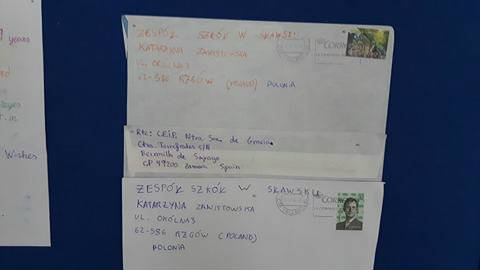 years
Wishes
ZESPÓŁ SZKÓŁ W SKAWSKU
KATARZYNA ZAWISTOWSKA
UL. OKÓLNA 3
62-586 RZGÓW (POLAND) POLONIA
Rte: C.E.I.P. Ntra Sra. de Gracia
Bermillo de Sayago
CP 49200 Zamora Spain
ZESPÓŁ SZKÓŁ W SKAWSKU
KATARZYNA ZAWISTOWSKA
UL. OKÓLNA 3
62-586 RZGÓW (POLAND)
POLONIA